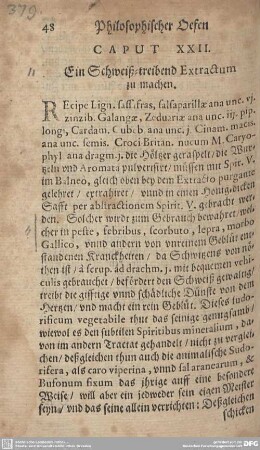 379.
48 Philosophischer Oefen
CAPUT XXII.
Ein Schweiß-treibend Extractum
zu machen.
REcipe Lign. sass.fras, salsaparillæ ana unc. vj.
zinzib. Galangæ, Zeduariæ ana unc. iij. pip.
longi, Cardam. Cub.b. ana unc. j. Cinam. macis
ana unc. semis. Croci Britan. nucum M. Caryo-
phyl. ana dragm.j. die Höltzer geraspelt/ die Wur-
tzeln und Aromata pulverisirt/ müssen mit Spir. V.
im Balneo, gleich oben bey dem Extracto purgante
gelehret/ extrahiret/ vnnd in einen Honig-dicken
Safft per abstractionem Spirit. V. gebracht wer-
den. Solcher wurd zum Gebrauch bewahret/ wel-
cher in peste, febribus, scorbuto, lepra, morbo
Gallico, vnnd andern von vnreinem Geblüt ent-
standenen Kranckheiten/ da Schwitzens von nö-
then ist/ à scrup. ad drachm. j. mit bequemen vehi-
culis gebrauchet/ befördert den Schweiß gewaltig/
treibt die gifftige vnnd schädliche Dünste von dem
Hertzen/ vnd macht ein rein Geblüt. Dieses sudo-
rificum vegetabile thut das seinige gnugsamb/
wiewol es den subtilen Spiritibus mineralium, da-
von im andern Tractat gehandelt/ nicht zu verglei-
chen/ deßgleichen thun auch die animalische Sudo-
rifera, als caro viperina, vnnd sal aranearum, &
Bufonum fixum das ihrige auff eine besondere
Weise/ will aber ein jedweder sein eigen Meister
seyn/ vnd das seine allein verrichten: Deßgleichen
schicken